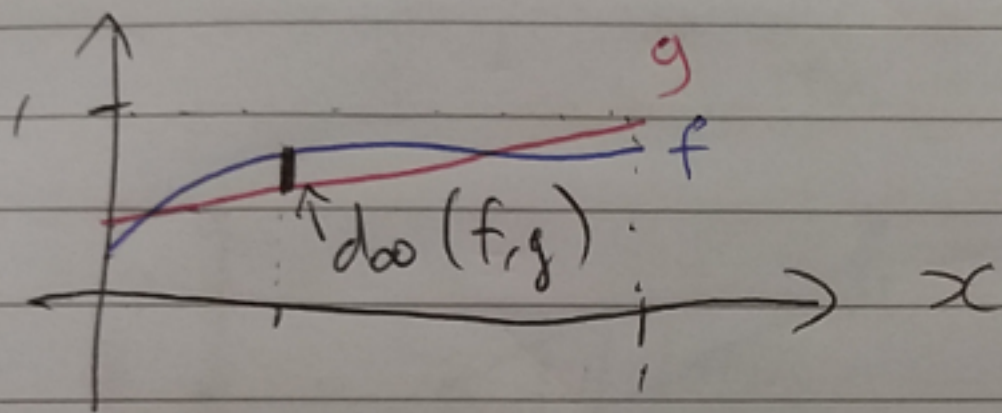 g
1
f
d∞ (f,g)
x
1